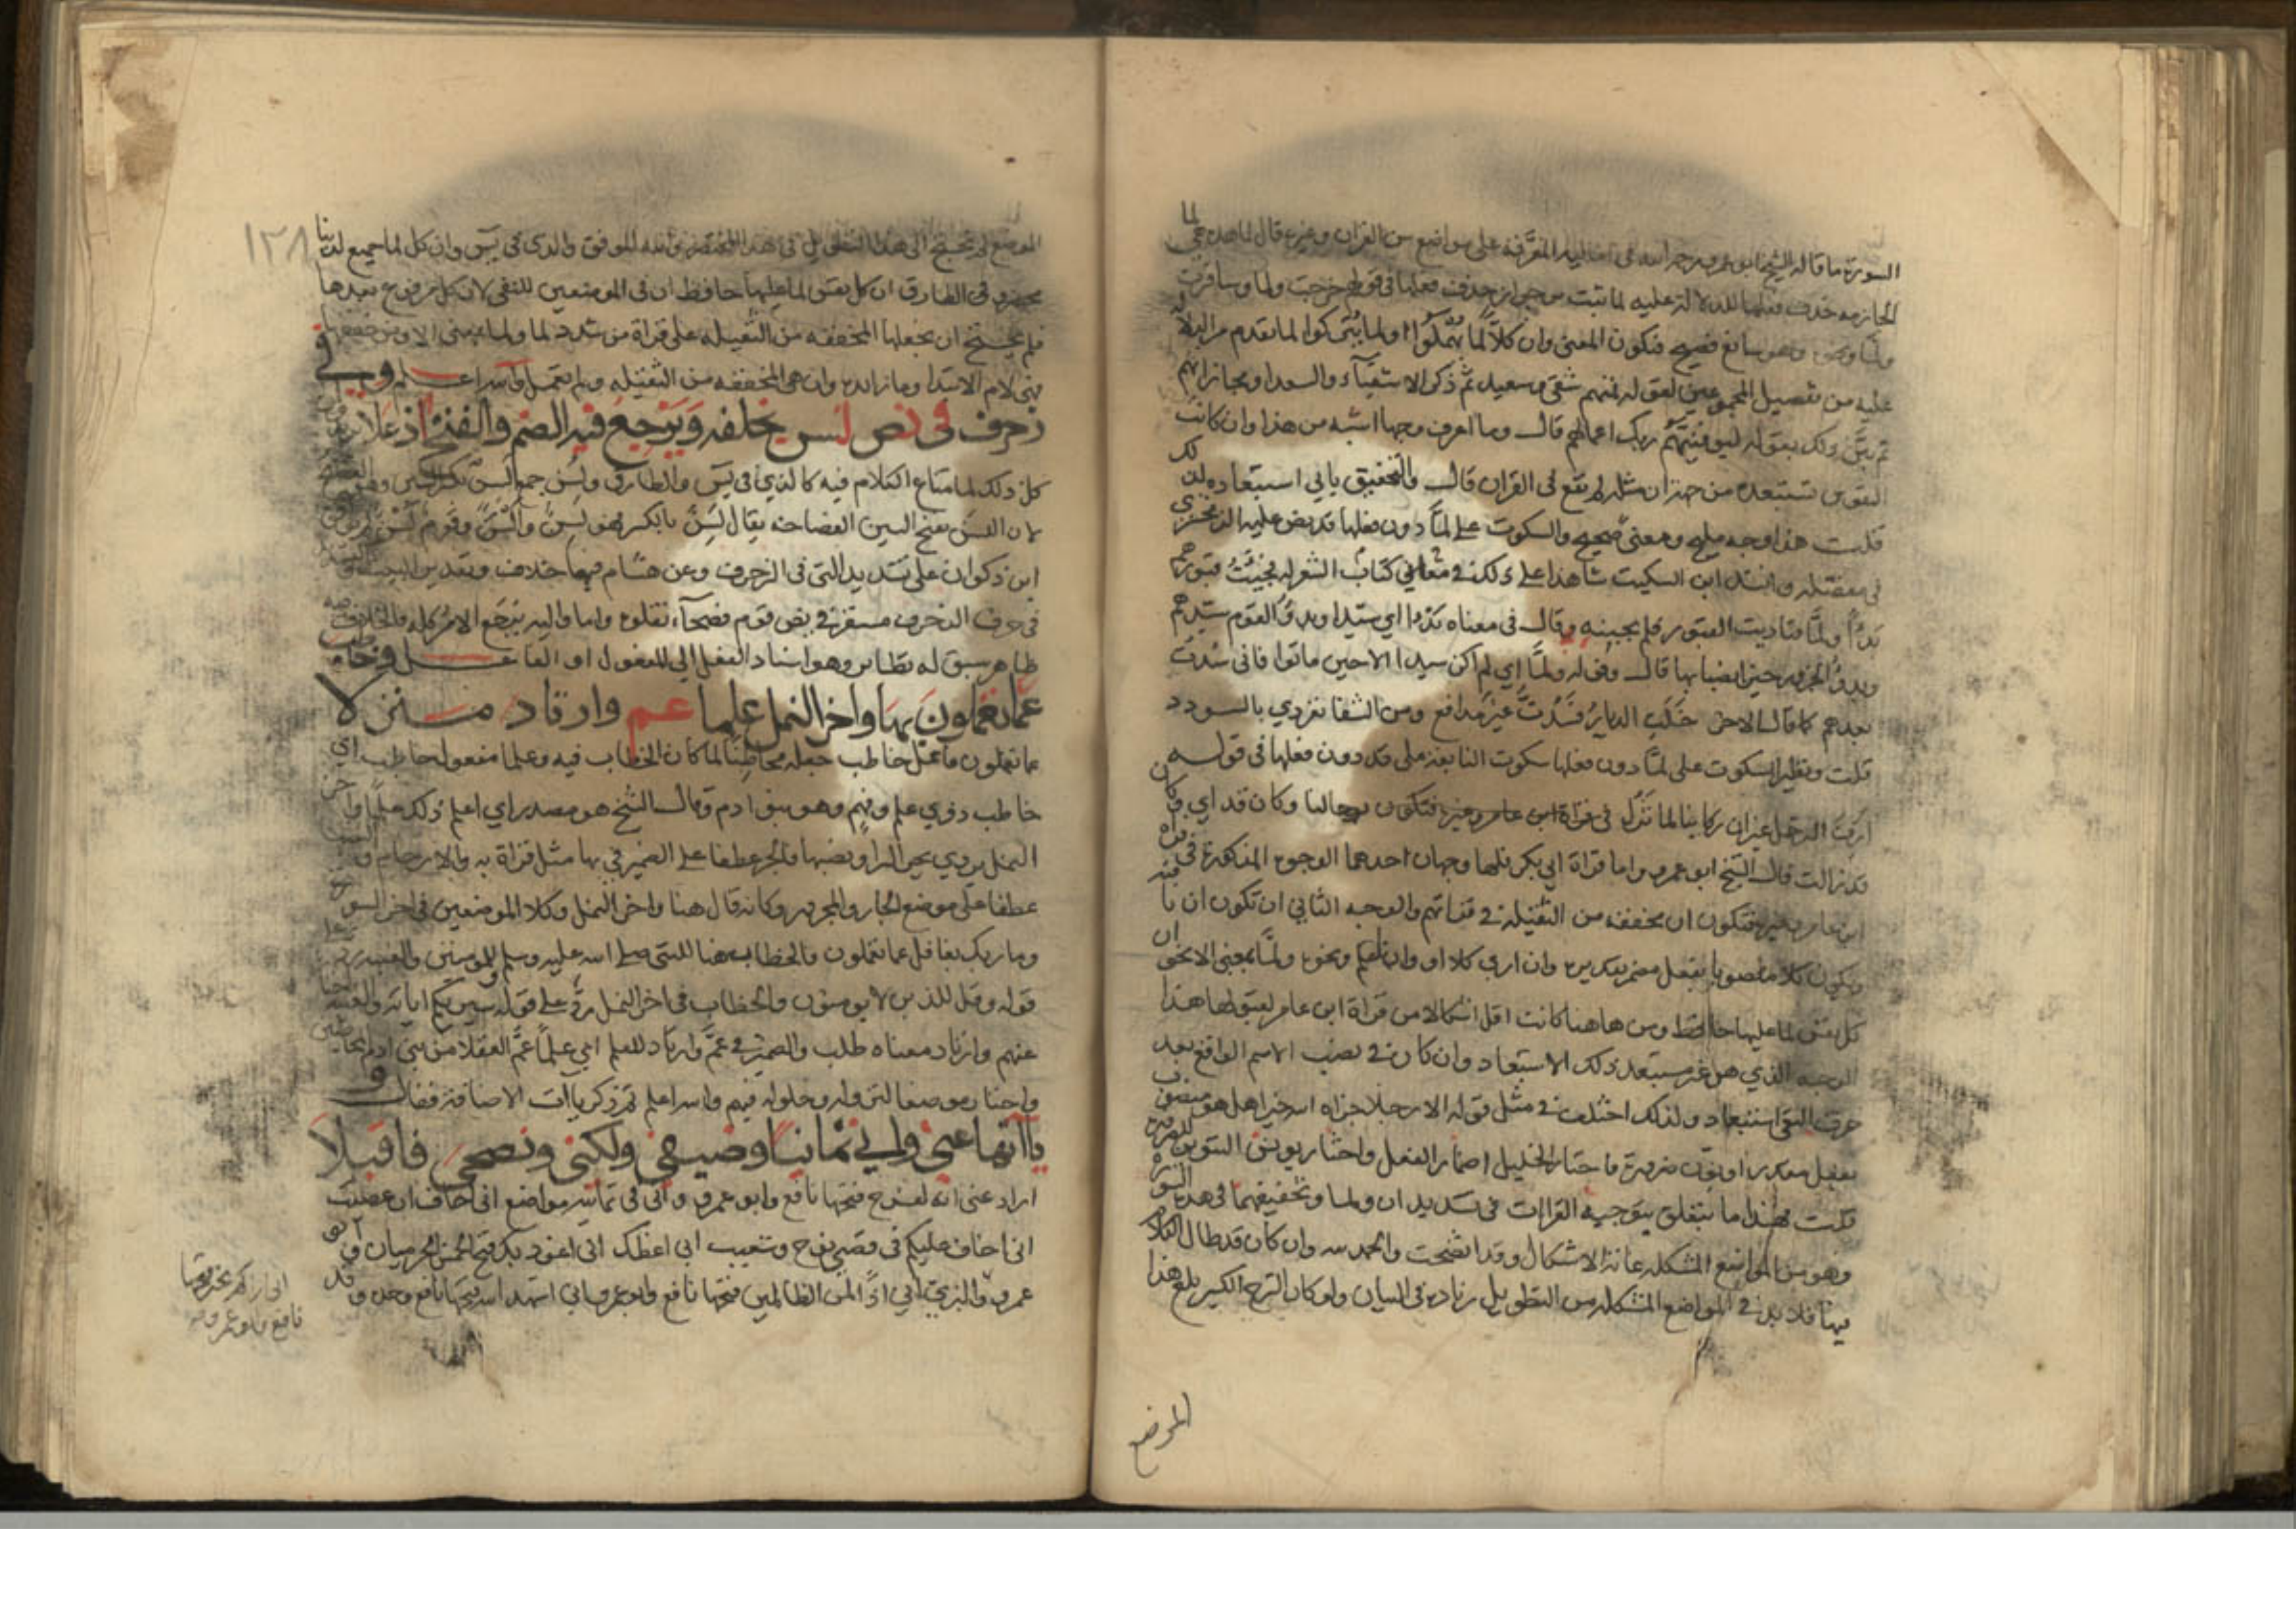 السورة ما قاله الشيخ ابو عمرو رحمه الله في اماليه المفرقة على مواضع من القران وغيره قال لما هذه هي لما
الجازمه حذف فعلها للدلالة عليه لما ثبت من جواز حذف فعلها في قولهم خرجت ولما وسافرت
ولما ونحوه وهو سائغ فصيح فيكون المعنى وان كلا لما يهملوا او لما يتركوا لما تقدم من الدلالة
عليه من تفصيل المجموعين لقوله فمنهم شقي وسعيد ثم ذكر الاشقياء والسعدا ومجازاتهم
ثم بين ذلك بقوله ليوفينهم ربك اعمالهم قال وما اعرف وجها اشبه من هذا وان كانت
النفوس تستبعده من جهة ان مثله لم يقع في القران قال والتحقيق يابى استبعاده لذلك
قلت هذا وجه مليح ومعنى صحيح والسكوت على لما دون فعلها قد نص عليه الزمخشري
في مفصله وانشد ابن السكيت شاهدا على ذلك في معاني كتاب الشعر له فجئت قبورهم
بدءا ولما فناديت القبور فلم يجبنه وقال في معناه بدءا اي سيدا وبدء القوم سيدهم
وبدء الجزور خير انصبائها قال وقوله ولما اي لم اكن سيدا الا حين ماتوا فاني سدت
بعدهم كما قال الاخر خلت الديار فسدت غير مدافع ومن الشقا تفردي بالسودد
قلت ونظير السكوت على لما دون فعلها سكوت النابغة على قد دون فعلها في قوله
ازف الترحل غير ان ركابنا لما تزل برحالنا وكان قد اي وكان
قد زالت قال الشيخ ابو عمرو واما قراة ابي بكر فلها وجهان احدهما الوجوه المذكورة في قراة
ابن عامر وغيره فتكون ان مخففة من الثقيلة في قراتهم والوجه الثاني ان تكون ان نافية
ويكون كلا منصوبا بفعل مضمر تقديره وان ارى كلا او وان اعلم ونحوه ولما بمعنى الا نحو ان
كل نفس لما عليها حافظ ومن هاهنا كانت اقل اشكالا من قراة ابن عامر لقبولها هذا
الوجه الذي هو غير مستبعد ذلك الاستبعاد وان كان في نصب الاسم الواقع بعد
حرف النفي استبعاد ولذلك اختلف في مثل قوله الا رجلا جزاه الله خيرا هل هو منصوب
بفعل مقدر او نون ضرورة فاختار الخليل اضمار الفعل واختار يونس التنوين للضرورة
قلت فهذا ما يتعلق بتوجيه القراات في تشديد ان ولما وتخفيفهما في هذه السورة
وهو من المواضع المشكلة غاية الاشكال وقد اتضحت والحمد لله وان كان قد طال الكلام
فيها فلا بد في المواضع المشكلة من التطويل زيادة في البيان ولو كان الشرح الكبير بلغ هذا
الموضع
١٢٨
الموضع لم نحتج الى هذا التطويل في هذا المختصر والله الموفق والذي في يس وان كل لما جميع لدينا
محضرون وفي الطارق ان كل نفس لما عليها حافظ ان في الموضعين للنفي لان كل مرفوع بعدها
فلم نحتج ان نجعلها المخففه من الثقيله على قراة من شدد لما ولما بمعنى الا ومن خففها
فهي لام الابتدا وما زائده وان هي المخففه من الثقيله ولم تعمل والله اعلم وفي
زخرف في نص لسن بخلفه ويرجع فيه الضم والفتح اذ علا
كل ذلك لما مضى الكلام فيه كالذي في يس والطارق ولسن جمع السن
لان اللسن بفتح السين الفصاحة يقال لسن بالكسر فهو لسن والسن وقوم لسن
ابن ذكوان على تشديد التي في الزخرف وعن هشام فيها خلاف وتقدير البيت
في حرف الزخرف مستقر في نص قوم فصحاء نقلوه واما واليه يرجع الامر كله والخلاف فيه
ظاهر سبق له نظائر وهو اسناد الفعل الى المفعول او الفاعل وخاطب
عما تعملون بها واخر النمل علما عم وارتاد منزلا
عما تعملون فاعل خاطب جعله مخاطبا لما كان الخطاب فيه وعلما مفعول خاطب اي
خاطب ذوي علم وفهم وهو بنو ادم وقال الشيخ هو مصدر اي اعلم ذلك علما واخر
النمل يروى بجر الرا ونصبها فالجر عطفا على الضمير في بها مثل قراة به والارحام
عطفا على موضع الجار والمجرور وكانه قال هنا واخر النمل وكلا الموضعين في اخر السورة
وما ربك بغافل عما تعملون فالخطاب هنا للنبي صلى الله عليه وسلم وللمومنين والغيب رد على
قوله وقل للذين لا يومنون والخطاب في اخر النمل رد على قوله سيريكم اياته والغيب
عنهم وارتاد معناه طلب والضمير في عم وارتاد للعلم اي علما عم العقلا من بني ادم
واختار موضعا لنزوله وحلوله فيهم والله اعلم ثم ذكر ياات الاضافة فقال و
ياااتها عني واني ثمانيا وضيفي ولكني ونصحي فاقبلا
اراد عني انه لفرح فتحها نافع وابو عمرو واني في ثمانية مواضع اني اخاف ان عصيت
اني اخاف عليكم في قصتي نوح وشعيب اني اعظك اني اعوذ بك فتح الخمس الحرميان وابو
عمرو والبزي اني اذا لمن الظالمين فتحها نافع وابو عمرو اني اشهد الله فتحها نافع وحده وقد
اني اراكم بخير فتحها
نافع وابو عمرو